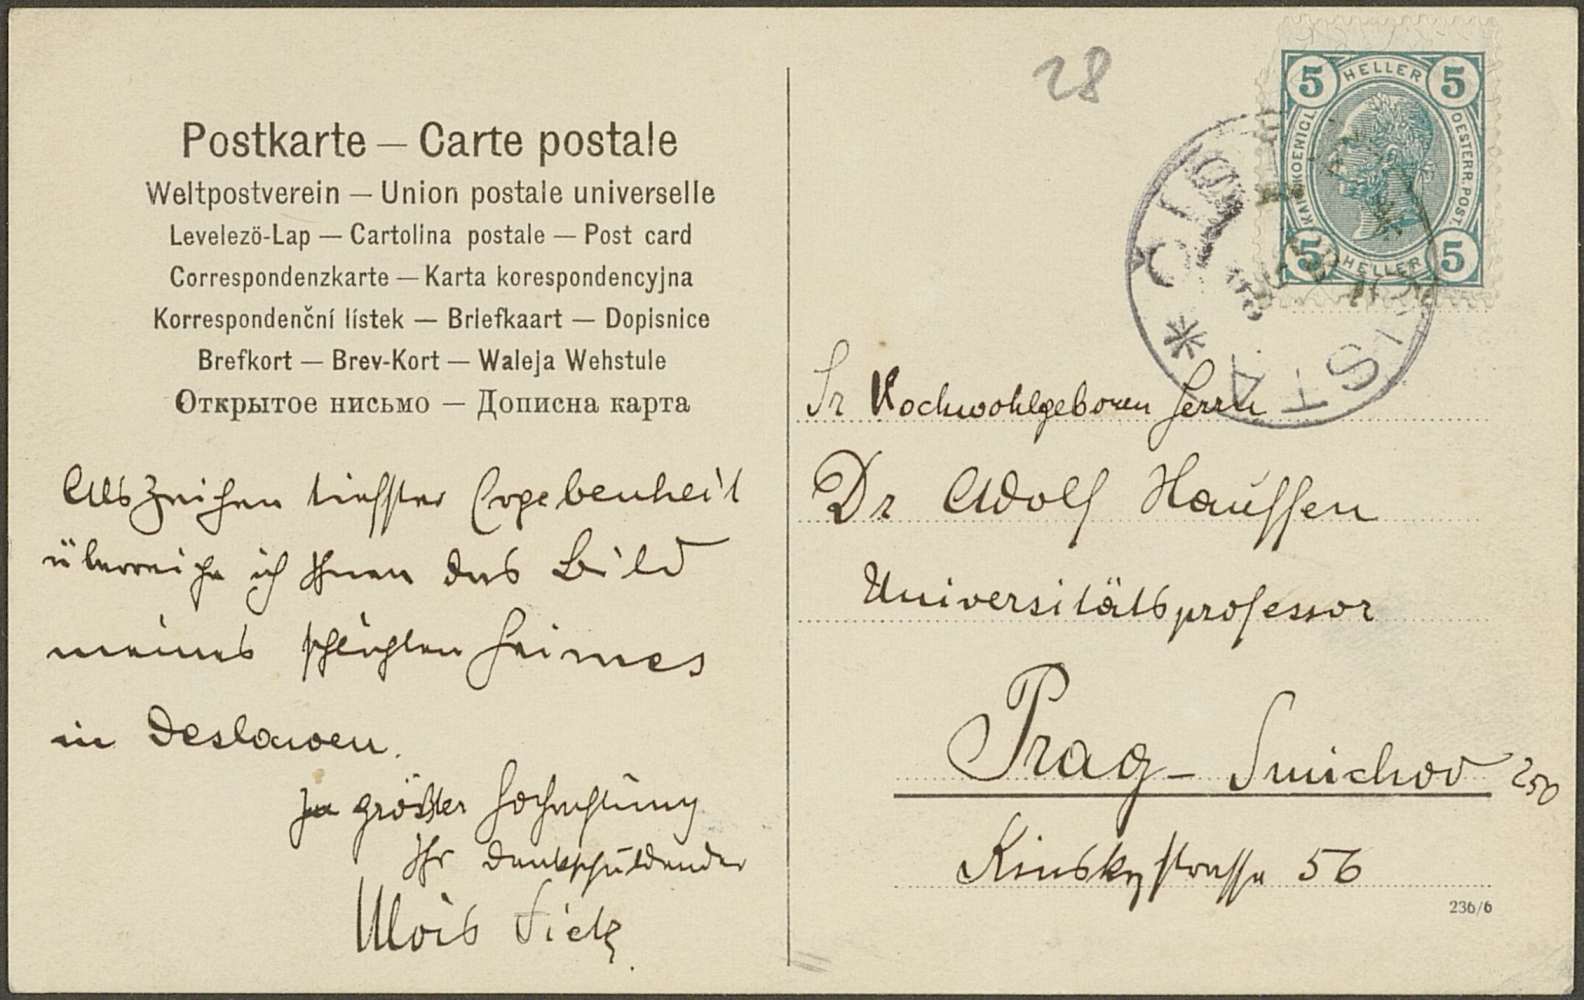 28
5 HELLER 5
KAIS. KOENIGL.
OESTERR. POST.
5 HELLER 5
Postkarte — Carte postale
Weltpostverein — Union postale universelle
Levelezö-Lap — Cartolina postale — Post card
Correspondenzkarte — Karta korespondencyjna
Korrespondenční lístek — Briefkaart — Dopisnice
Brefkort — Brev-Kort — Waleja Wehstule
Открытое нисьмо — Дописна карта
Als Zeichen tiefster Ergebenheit
überreiche ich Ihnen das Bild
meines schlichten Heimes
in Deslawen.
In größter Hochachtung
Ihr dankschuldender
Alois Fietz.
Sr Hochwohlgeboren Herrn
Dr Adolf Hauffen
Universitätsprofessor
Prag - Smichov 250
Kinskystrasse 56
236/6